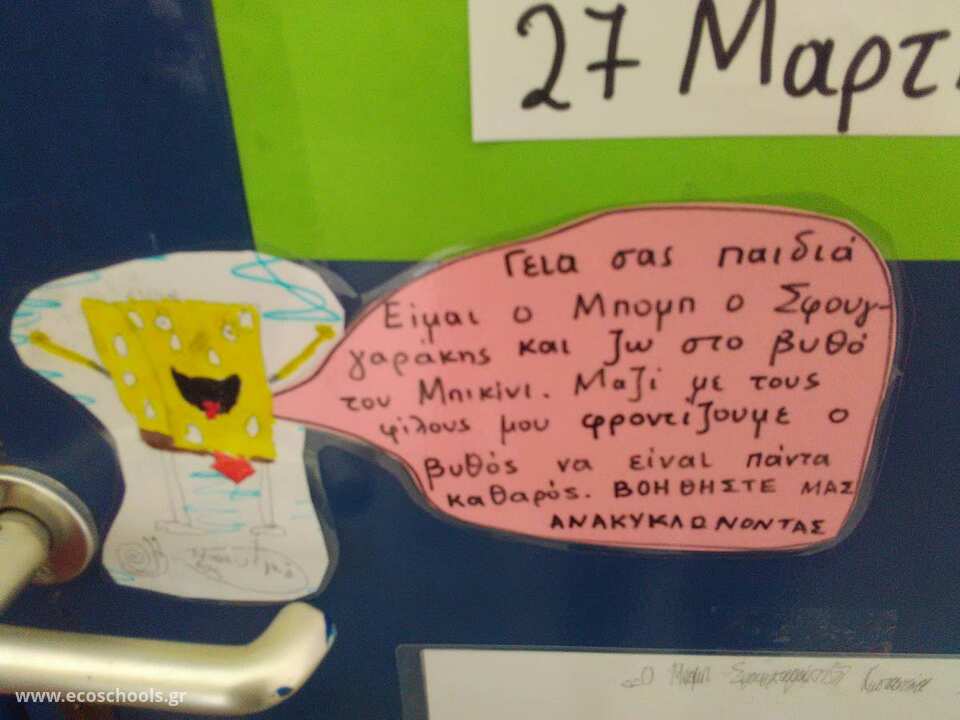 27 Μαρτ
Γεια σας παιδιά
Είμαι ο Μπομπ ο Σφουγ-
γαράκης και ζω στο βυθό
του Μπικίνι. Μαζί με τους
φίλους μου φροντίζουμε ο
βυθός να είναι πάντα
καθαρός. ΒΟΗΘΗΣΤΕ ΜΑΣ
ΑΝΑΚΥΚΛΩΝΟΝΤΑΣ
Ο Μπομπ
www.ecoschools.gr